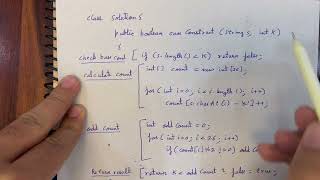 class Solution {
public boolean can Construct (String s, int k)
{
check base cond [ if (s.length() < k) return false;
calculate count [ int[] count = new int[26];
for (int i=0; i < s.length(); i++)
count [s.charAt(i) - 'a']++;
odd count [ int odd count = 0;
for (int i=0; i < 26; i++)
if (count[i] % 2 != 0) odd count ++;
Return result [ return k < odd count ? false : true;